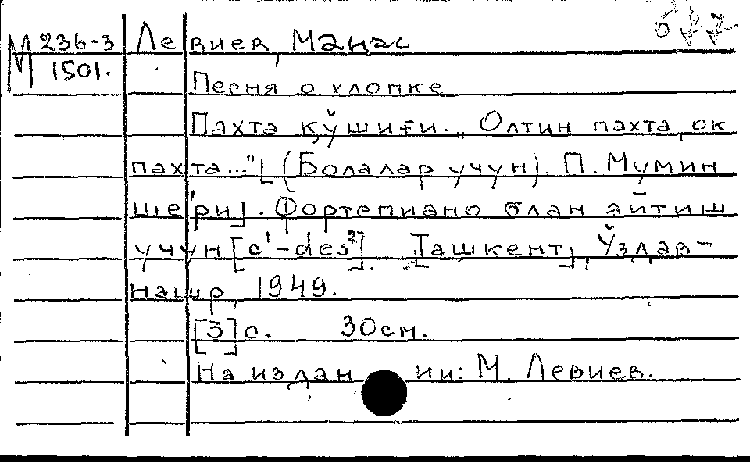 М 236-3 Левиев, Манас
1501.
Песня о хлопке
Пахта қўшиғи. „Олтин пахта, оқ
пахта..." [(Болалар учун). П. Мумин
ше'ри]. Фортепиано блан айтиш
учун [c¹-des²]. [Ташкент], Ўздав-
нашр, 1949.
[3] с. 30 см.
На издании: М. Левиев.